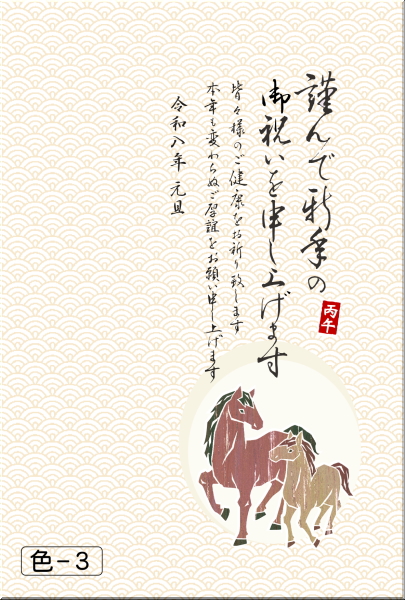 謹んで新年の
御祝いを申し上げます
丙午
皆々様のご健康をお祈り致します
本年も変わらぬご厚誼をお願い申し上げます
令和八年 元旦
色−3